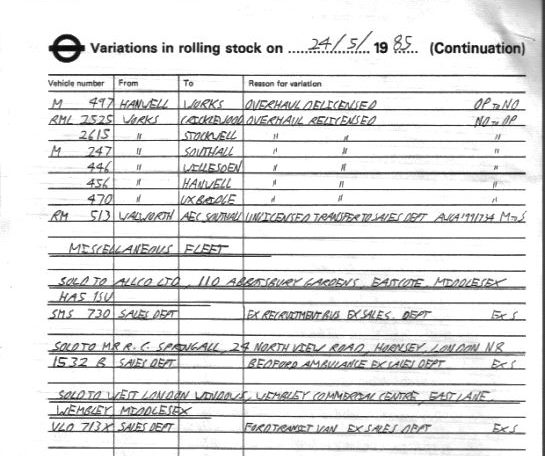 Variations in rolling stock on 24/5/ 19 85 (Continuation)
Vehicle number From To Reason for variation
M 497 HANWELL WORKS OVERHAUL DELICENSED OP TO NO
RML 2525 WORKS CRICKLEWOOD OVERHAUL RELICENSED NO TO OP
2615 " STOCKWELL " " "
M 247 " SOUTHALL " " "
446 " WILLESDEN " " "
456 " HANWELL " " "
470 " UXBRIDGE " " "
RM 513 WALWORTH AEC SOUTHALL UNLICENSED TRANSFER TO SALES DEPT M TO S
MISCELLANEOUS FLEET
SOLD TO ALLCO LTD, 110 ABBOTSBURY GARDENS, EASTCOTE, MIDDLESEX
HA5 1SU
SMS 730 SALES DEPT EX RECRUITMENT BUS EX SALES DEPT EX S
SOLD TO MR R. C. SPRINGALL, 24 NORTH VIEW ROAD, HORNSEY, LONDON N8
1532 B SALES DEPT BEDFORD AMBULANCE EX SALES DEPT EX S
SOLD TO WEST LONDON WINDOWS, WEMBLEY COMMERCIAL CENTRE, EAST LANE,
WEMBLEY MIDDLESEX
VLO 713X SALES DEPT FORD TRANSIT VAN EX SALES DEPT EX S